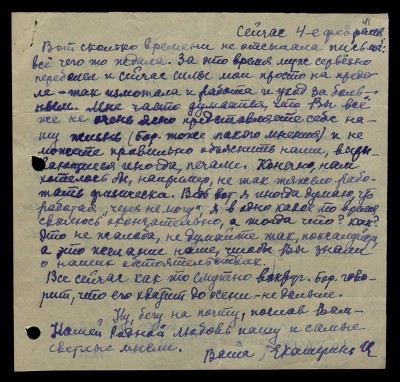 Сейчас 4-е февраля,
Вот сколько времени не отсылала письмо:
всё чего то ждала. За это время мужс серьёзно
переболел и сейчас силы мои просто на преде-
ле - так измотала и работа и уход за боль-
ным. Мне часто думается, что Вы всё
же не очень ясно представляете себе на-
шу жизнь (Бор. тоже такого мнения) и не
можете правильно объяснить наши, 
иногда, печали. Конечно, нам
хотелось бы, например, не так тяжело рабо-
тать физически. Вот я иногда думаю, что
работая, через не могу, я в одно какое-то время
свалюсь окончательно, а тогда что? Как?
Это не жалоба, не думайте так, пожалуйста,
а это желание наше, чтобы Вы знали
о наших обстоятельствах.
Все сейчас как то смутно вокруг. Бор. гово-
рит, что его хватит до осени - не дольше.
Ну, бегу на почту, послав Вам -
Нашей Родной любовь нашу и самые
светлые мысли.
Ваша Екатерина